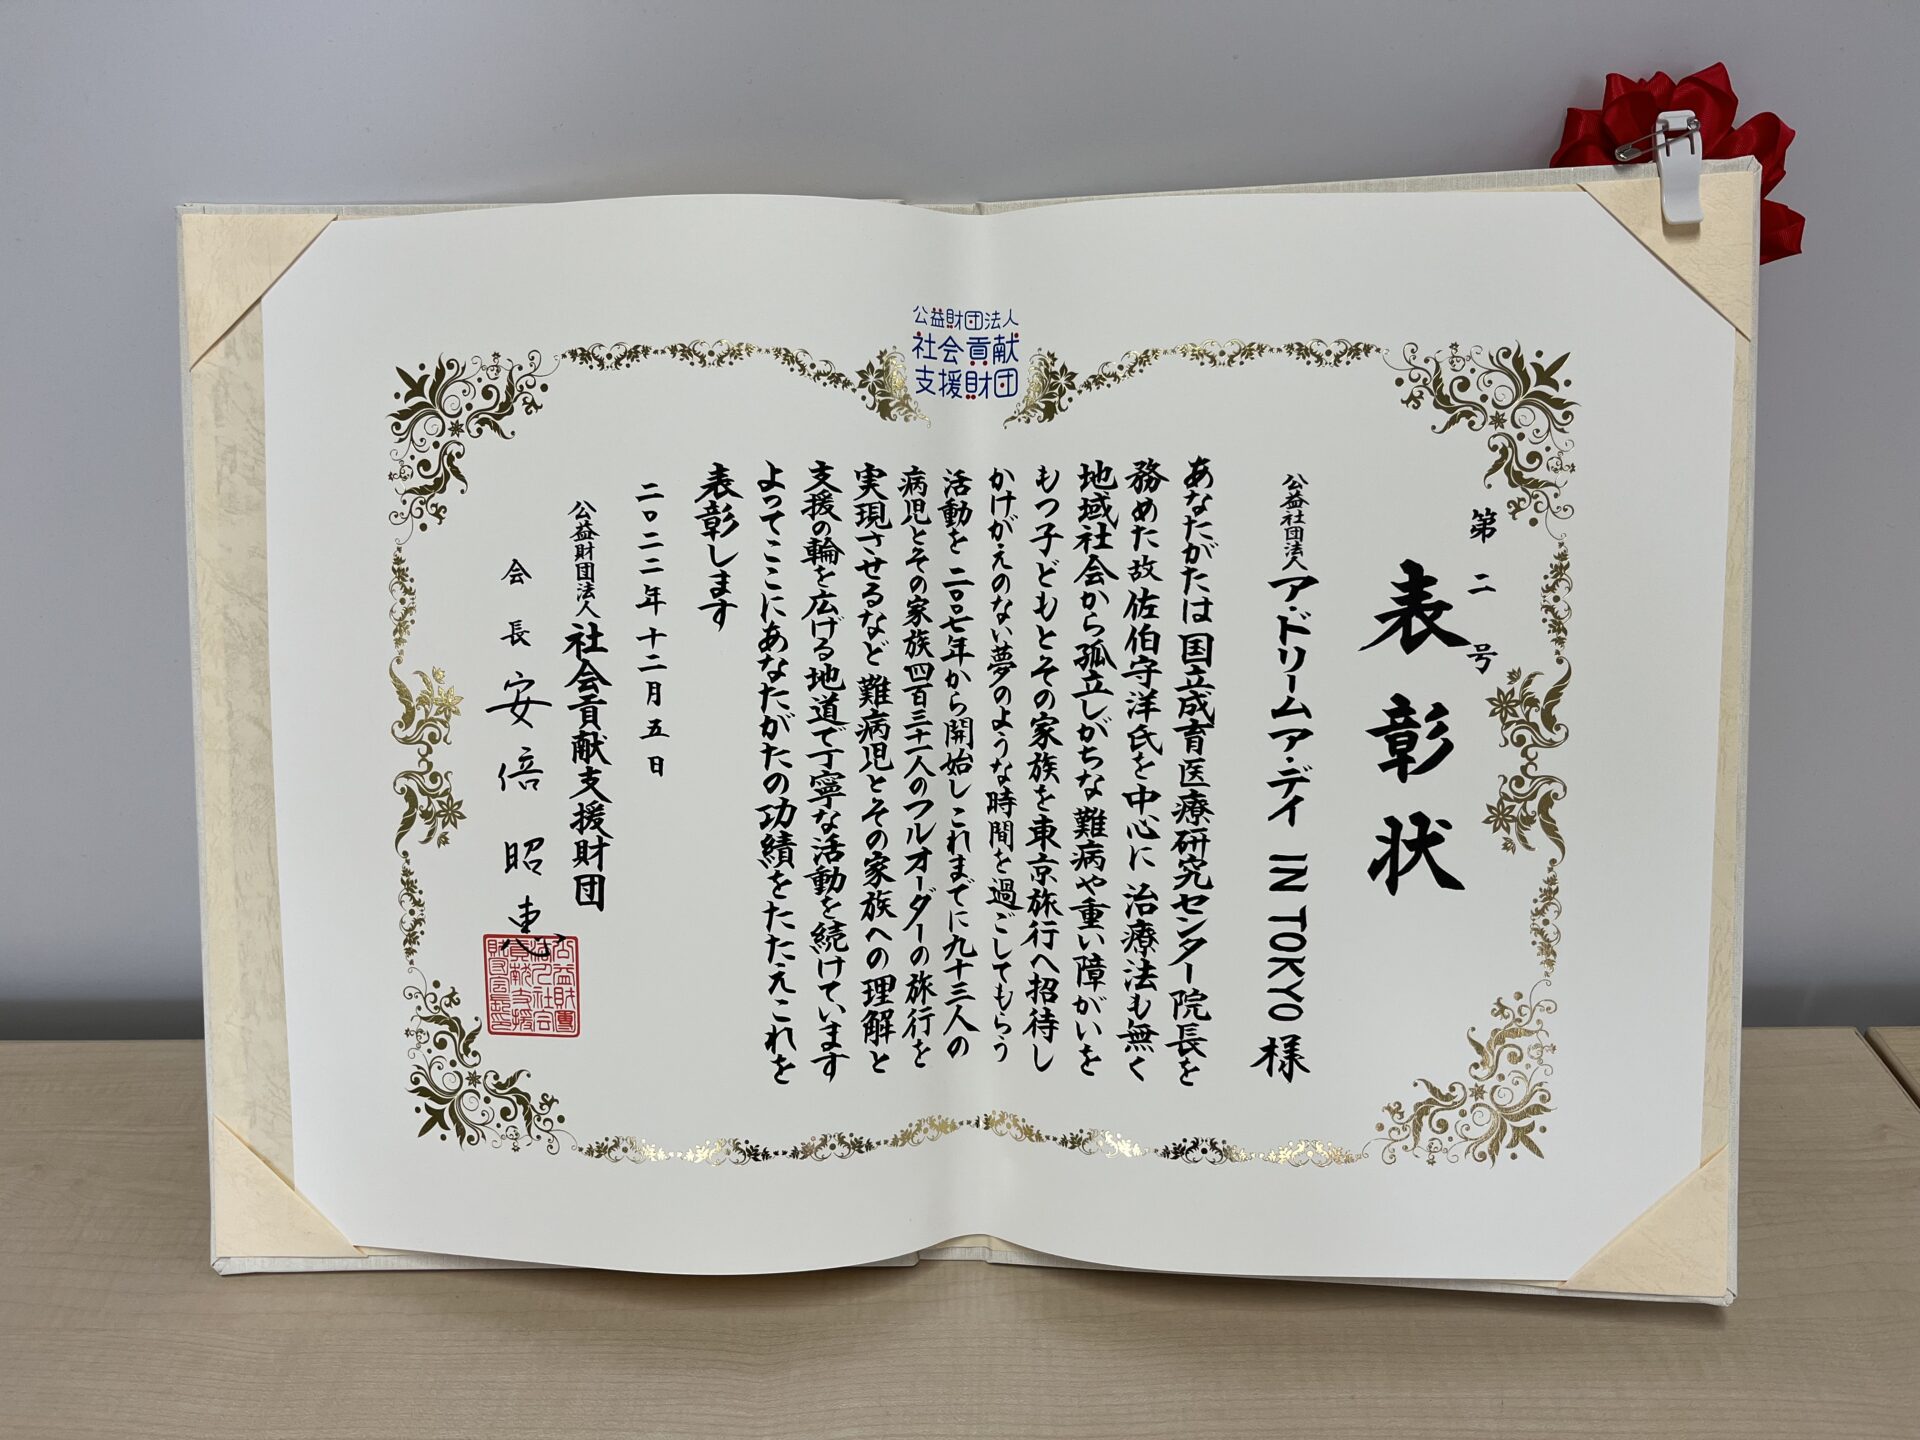 公益財団法人
社会貢献
支援財団
第二号
表彰状
公益社団法人 ア・ドリーム ア・デイ IN TOKYO 様
あなたがたは国立成育医療研究センター院長を
務めた故佐伯守洋氏を中心に治療法も無く
地域社会から孤立しがちな難病や重い障がいを
もつ子どもとその家族を東京旅行へ招待し
かけがえのない夢のような時間を過ごしてもらう
活動を二〇〇七年から開始しこれまでに九十三人の
病児とその家族四百三十一人のフルオーダーの旅行を
実現させるなど難病児とその家族への理解と
支援の輪を広げる地道で丁寧な活動を続けています
よってここにあなたがたの功績をたたえこれを
表彰します
二〇二二年十二月五日
公益財団法人 社会貢献支援財団
会長 安倍昭恵